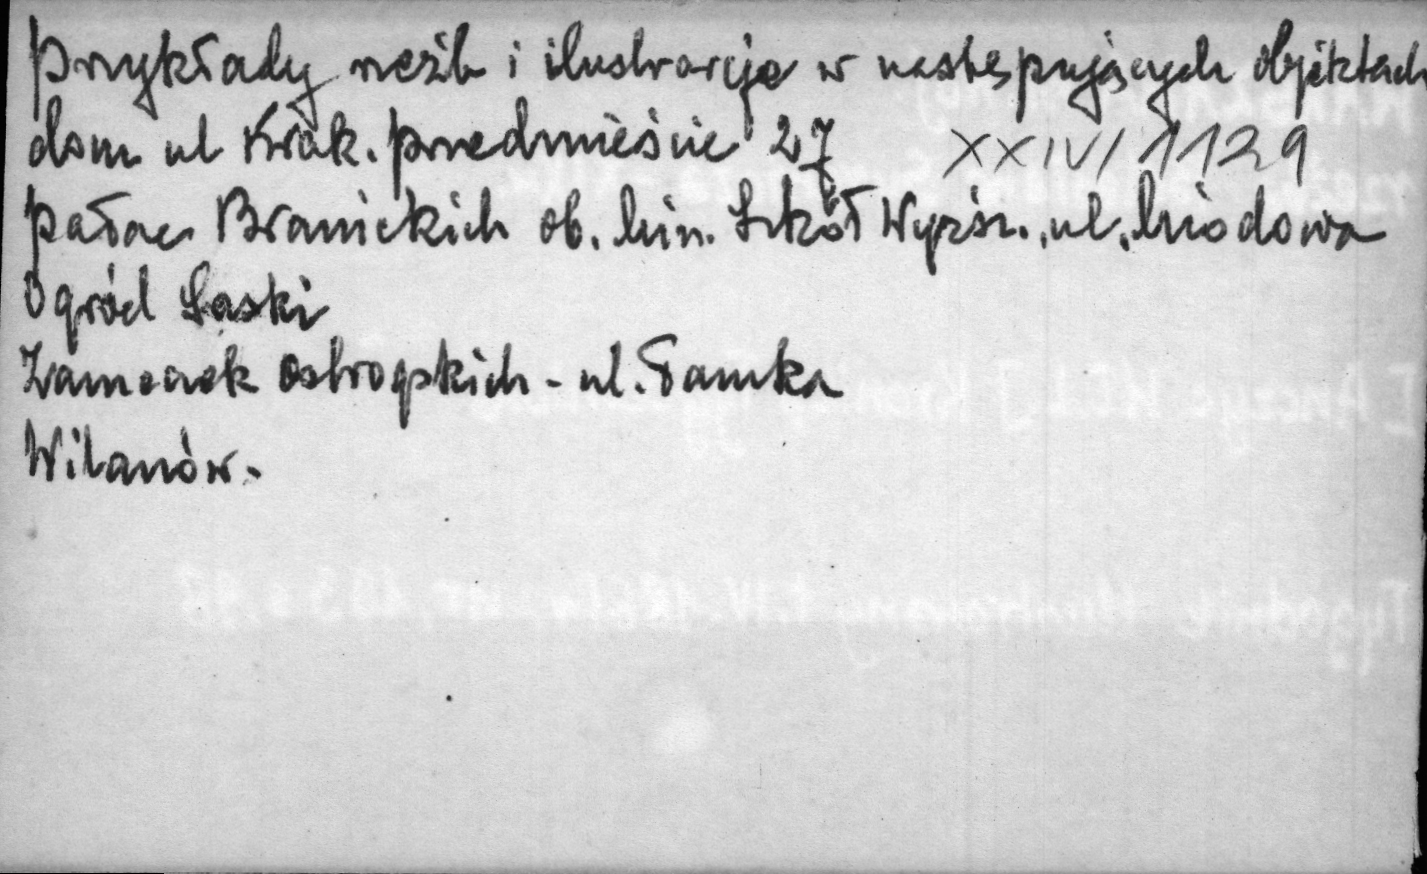 Przykłady rzeźb i ilustracje w następujących objektach
dom ul Krak. Przedmieście 27 XXIV/1129
pałac Branickich ob. Min. Szkół Wyższ. ul. Miodowa
Ogród Saski
Zameczek Ostrogskich - ul. Tamka
Wilanów.